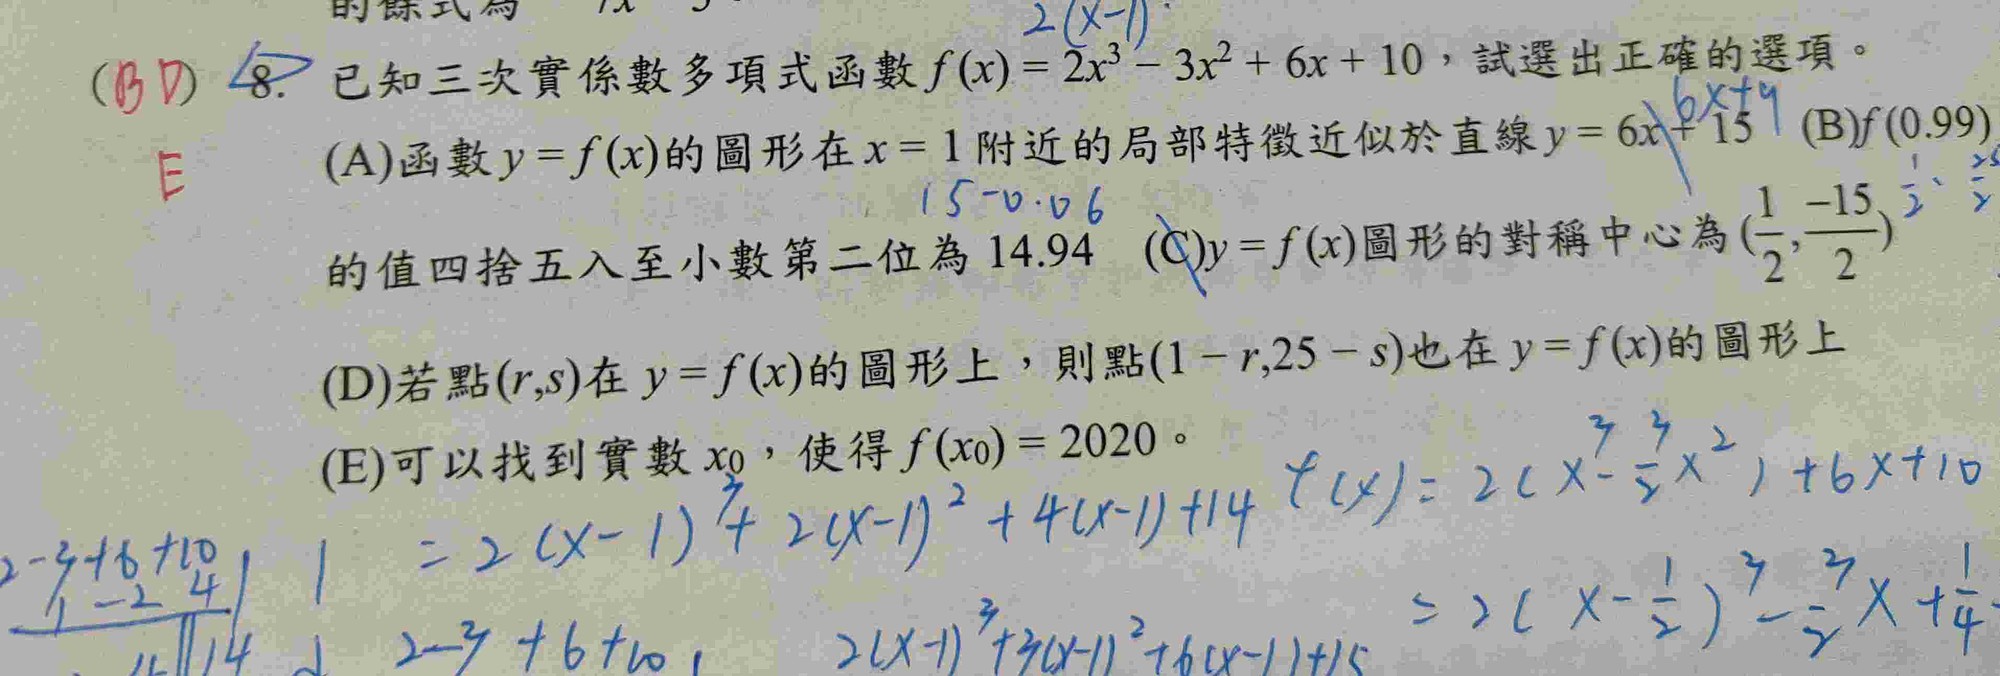 的餘式為
2(x-1)
(BD) 8. 已知三次實係數多項式函數 f(x) = 2x³ − 3x² + 6x + 10，試選出正確的選項。
6x+9
E (A)函數 y = f(x)的圖形在 x = 1 附近的局部特徵近似於直線 y = 6x + 15 (B)f(0.99)
15-0.06
的值四捨五入至小數第二位為 14.94 (C)y = f(x)圖形的對稱中心為(1/2, −15/2)
(D)若點(r,s)在 y = f(x)的圖形上，則點(1 − r,25 − s)也在 y = f(x)的圖形上
(E)可以找到實數 x₀，使得 f(x₀) = 2020。
f(x) = 2(x³ - 3/2 x²) + 6x + 10
= 2(x-1)³ + 2(x-1)² + 4(x-1) + 14
2-3+6+10 | 1
= 2(x - 1/2)³ - 3/2 x + 1/4
-2 4
14
2-3+6+10
2(x-1)³+3(x-1)²+6(x-1)+15